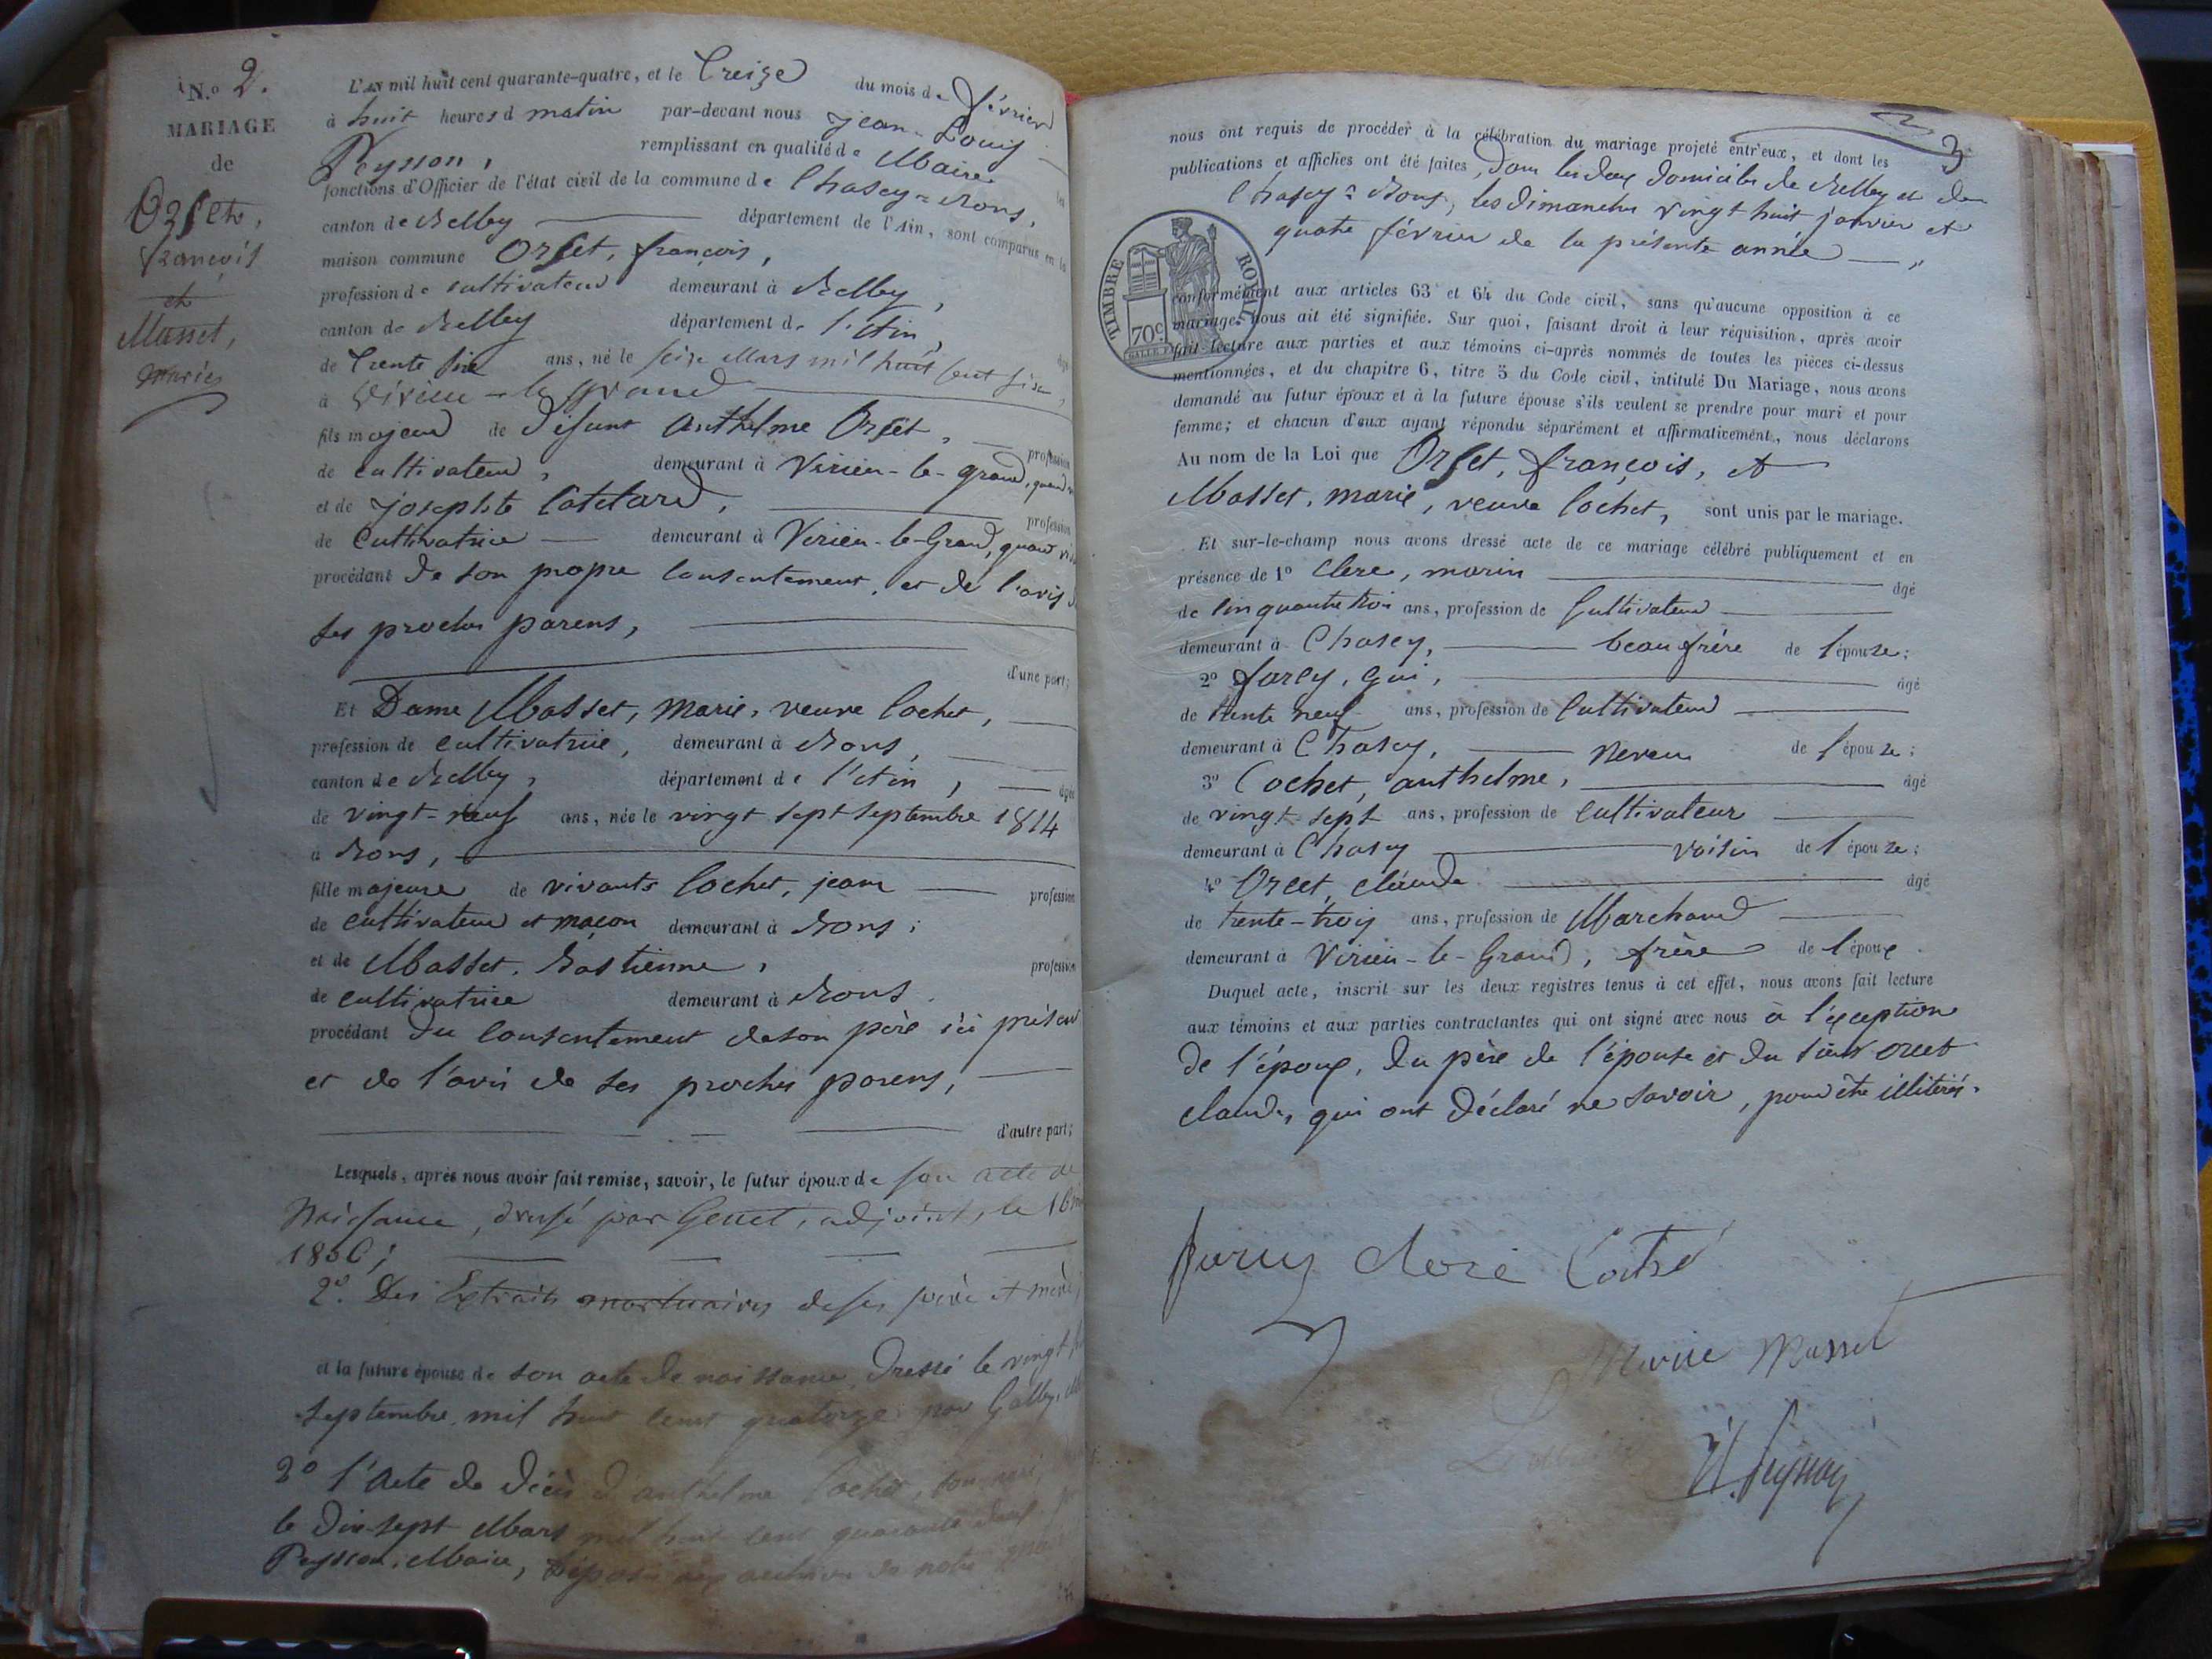 N.o 2.
MARIAGE
de
Orset,
françois
et
Masset,
marie
L'an mil huit cent quarante-quatre, et le treize du mois de février
à huit heures d matin par-devant nous jean-Louis
Peysson, remplissant en qualité de Maire les
fonctions d'Officier de l'état civil de la commune de Chasey-Bons,
canton de Belley département de l'Ain, sont comparus en la
maison commune Orset, françois,
profession de cultivateur demeurant à Belley,
canton de Belley département de l'Ain, âgé
de trente six ans, né le seize Mars mil huit cent six
à Virieu-le-grand
fils majeur de défunt Anthelme Orset, profession
de cultivateur, demeurant à Virieu-le-grand, quand
et de josephte Catelard, profession
de Cultivatrice demeurant à Virieu-le-Grand, quand
procédant de son propre consentement, et de l'avis
ses proches parens,
d'une part;
Et Dame Masset, Marie, veuve Cochet,
profession de cultivatrice, demeurant à Bons,
canton de Belley, département de l'Ain, âgée
de vingt-neuf ans, née le vingt sept septembre 1814
à Bons,
fille majeure de vivants Cochet, jean profession
de cultivateur et maçon demeurant à Bons;
et de Masset, Bastienne, profession
de cultivatrice demeurant à Bons.
procédant du consentement de son père ici présent
et de l'avis de ses proches parens,
d'autre part;
Lesquels, après nous avoir fait remise, savoir, le futur époux de son acte de
Naissance, dressé par Genet, adjoint, le 16
2o. Des Extraits mortuaires de ses père et mère
et la future épouse de son acte de naissance, dressé le vingt
septembre mil huit cent quatorze par Galley,
2o l'Acte de décès d'anthelme Cochet, son mari,
le dix-sept Mars mil huit cent quarante deux
Peysson, Maire, déposé aux archives de notre
3
nous ont requis de procéder à la célébration du mariage projeté entr'eux, et dont les
publications et affiches ont été faites, dans les deux domiciles de Belley et de
Chasey-Bons, les dimanches vingt huit janvier et
quatre février de la présente année
TIMBRE ROYAL
70c
conformément aux articles 63 et 64 du Code civil, sans qu'aucune opposition à ce
mariage nous ait été signifiée. Sur quoi, faisant droit à leur réquisition, après avoir
fait lecture aux parties et aux témoins ci-après nommés de toutes les pièces ci-dessus
mentionnées, et du chapitre 6, titre 5 du Code civil, intitulé Du Mariage, nous avons
demandé au futur époux et à la future épouse s'ils veulent se prendre pour mari et pour
femme; et chacun d'eux ayant répondu séparément et affirmativement, nous déclarons
Au nom de la Loi que Orset, françois, et
Masset, marie, veuve Cochet, sont unis par le mariage.
Et sur-le-champ nous avons dressé acte de ce mariage célébré publiquement et en
présence de 1o Clerc, marin âgé
de Cinquante trois ans, profession de Cultivateur
demeurant à Chasey, beau frère de l'épouse;
2o furcy, gui, âgé
de trente neuf ans, profession de Cultivateur
demeurant à Chasey, Neveu de l'épouze;
3o Cochet, anthelme, âgé
de vingt-sept ans, profession de Cultivateur
demeurant à Chasey voisin de l'épouze;
4o Orcet, claude âgé
de trente-trois ans, profession de Marchand
demeurant à Virieu-le-Grand, frère de l'époux
Duquel acte, inscrit sur les deux registres tenus à cet effet, nous avons fait lecture
aux témoins et aux parties contractantes qui ont signé avec nous à l'exception
de l'époux, du père de l'épouse et du sieur orcet
claude, qui ont déclaré ne savoir, pour être illitérés.
Marie Masset